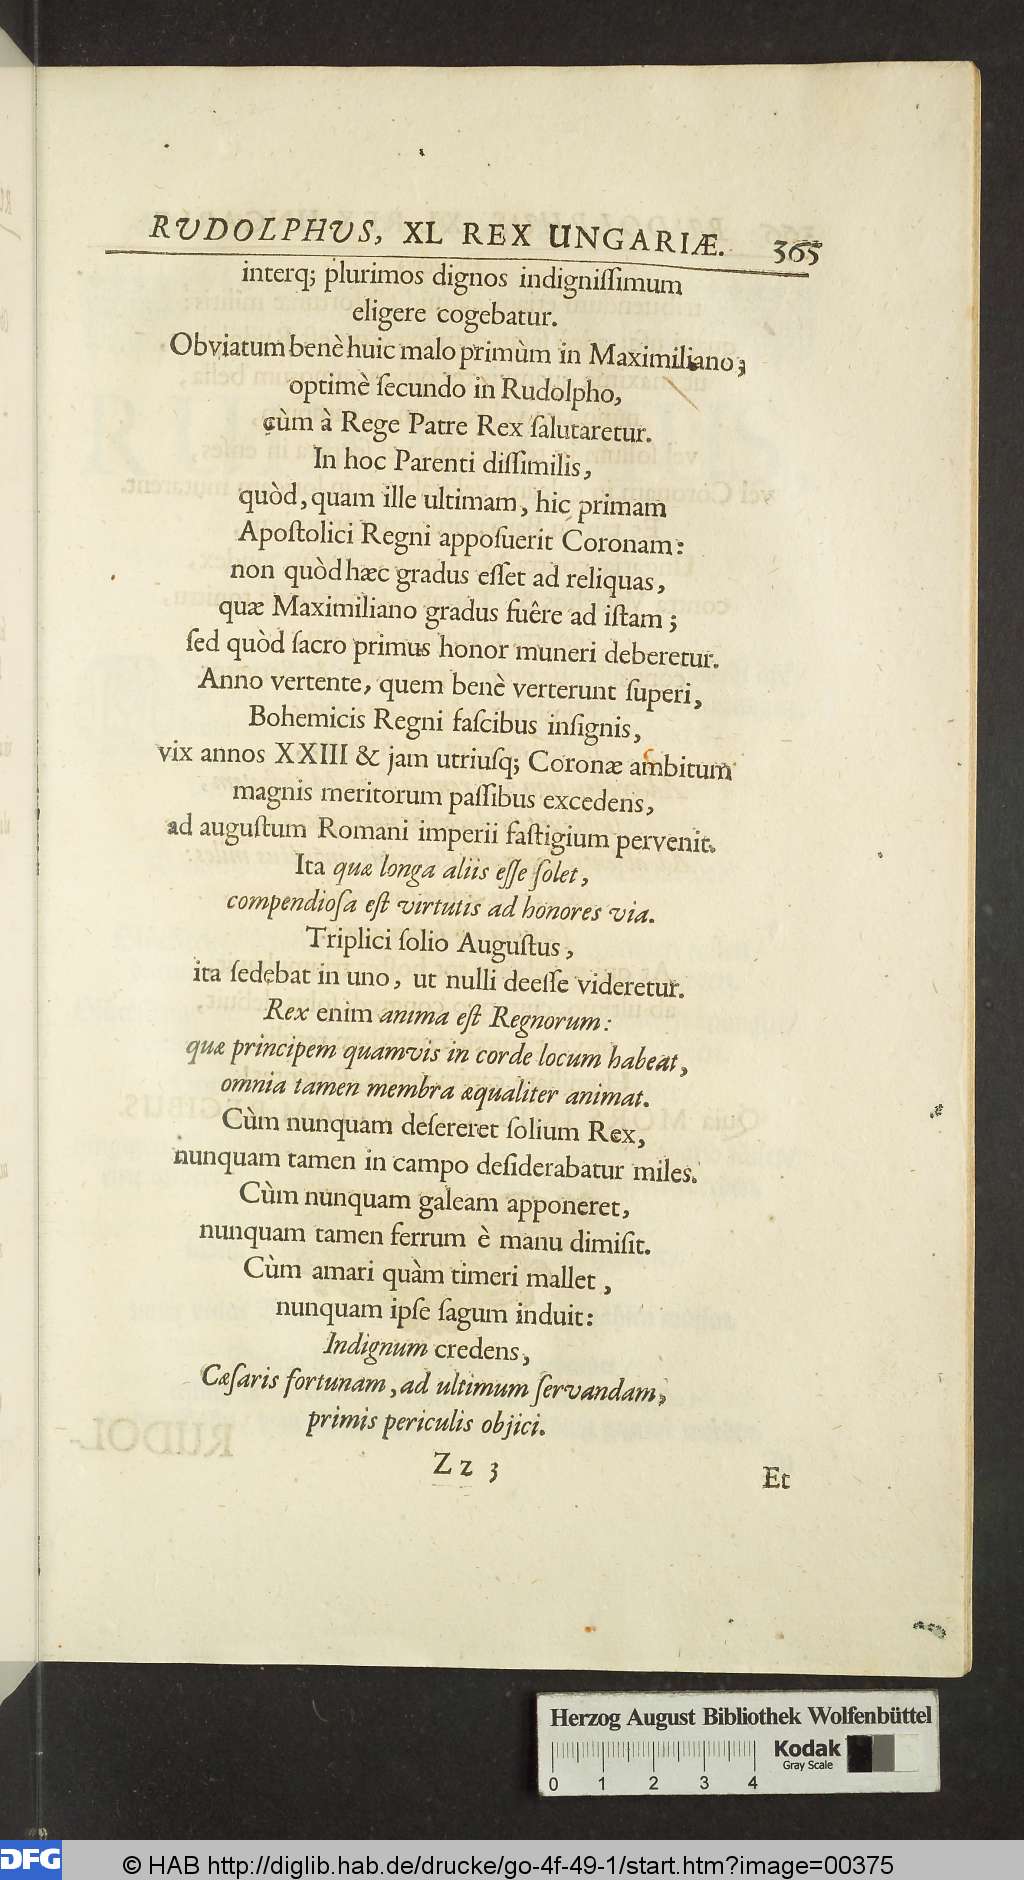 RVDOLPHVS, XL REX UNGARIÆ. 365
interq; plurimos dignos indigniſſimum
eligere cogebatur.
Obviatum benè huic malo primùm in Maximiliano;
optimè ſecundo in Rudolpho,
cùm à Rege Patre Rex ſalutaretur.
In hoc Parenti diſſimilis,
quòd, quam ille ultimam, hic primam
Apoſtolici Regni appoſuerit Coronam:
non quòd hæc gradus eſſet ad reliquas,
quæ Maximiliano gradus fuêre ad iſtam;
ſed quòd ſacro primus honor muneri deberetur.
Anno vertente, quem benè verterunt ſuperi,
Bohemicis Regni faſcibus inſignis,
vix annos XXIII & jam utriuſq; Coronæ ambitum
magnis meritorum paſſibus excedens,
ad auguſtum Romani imperii faſtigium pervenit.
Ita quæ longa aliis eſſe ſolet,
compendioſa eſt virtutis ad honores via.
Triplici ſolio Auguſtus,
ita ſedebat in uno, ut nulli deeſſe videretur.
Rex enim anima eſt Regnorum:
quæ principem quamvis in corde locum habeat,
omnia tamen membra æqualiter animat.
Cùm nunquam deſereret ſolium Rex,
nunquam tamen in campo deſiderabatur miles.
Cùm nunquam galeam apponeret,
nunquam tamen ferrum è manu dimiſit.
Cùm amari quàm timeri mallet,
nunquam ipſe ſagum induit:
Indignum credens,
Cæſaris fortunam, ad ultimum ſervandam,
primis periculis objici.
Zz 3 Et
Herzog August Bibliothek Wolfenbüttel
Kodak
Gray Scale
0 1 2 3 4
DFG © HAB http://diglib.hab.de/drucke/go-4f-49-1/start.htm?image=00375